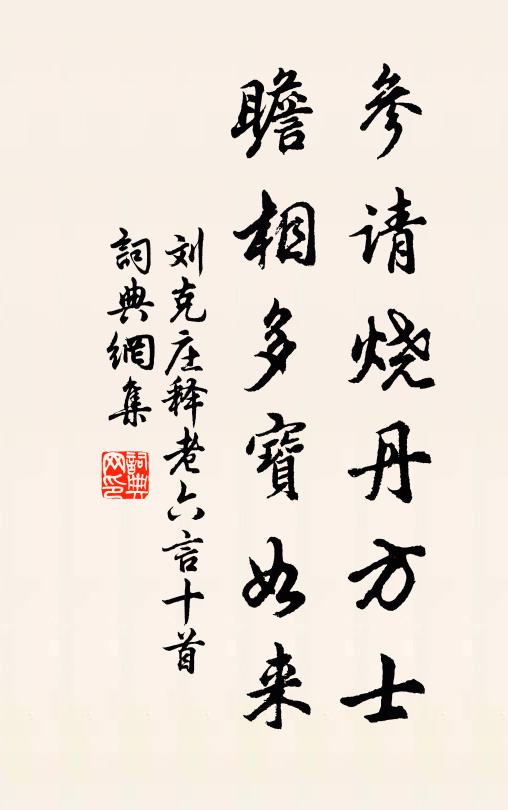 參请烧丹方士
瞻相多寶如来
刘克庄释老六言十首
詞典網集
詞典网印